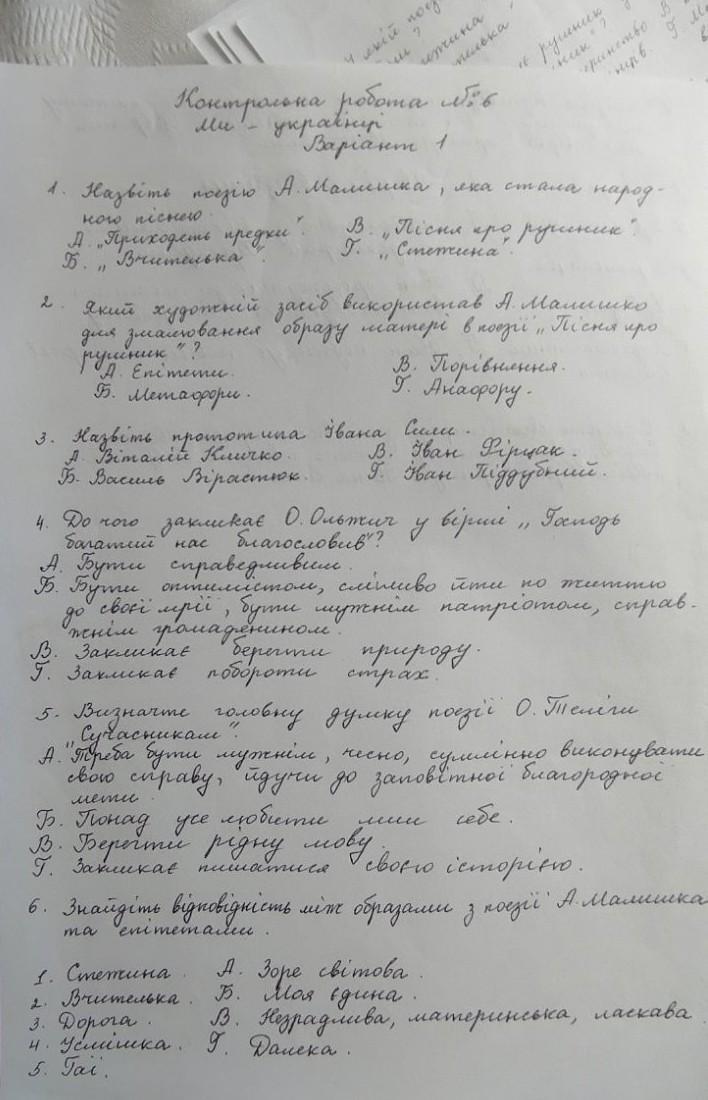 Контрольна робота № 6
Ми - українці
Варіант 1
1. Назвіть поезію А. Малишка, яка стала народ-
ною піснею.
А. „Приходять предки". В. „Пісня про рушник".
Б. „Вчителька". Г. „Стежина".
2. Який художній засіб використав А. Малишко
для змалювання образу матері в поезії „Пісня про
рушник"?
А. Епітети. В. Порівняння.
Б. Метафори. Г. Анафору.
3. Назвіть прототипа Івана Сили.
А. Віталій Кличко. В. Іван Фірцак.
Б. Василь Вірастюк. Г. Іван Піддубний.
4. До чого закликає О. Ольжич у вірші „Господь
багатий нас благословив"?
А. Бути справедливим.
Б. Бути оптимістом, сміливо йти по життю
до своєї мрії, бути мужнім патріотом, справ-
жнім громадянином.
В. Закликає берегти природу.
Г. Закликає побороти страх.
5. Визначте головну думку поезії О. Теліги
„Сучасникам".
А. Треба бути мужнім, чесно, сумлінно виконувати
свою справу, йдучи до заповітної благородної
мети.
Б. Понад усе любити лиш себе.
В. Берегти рідну мову.
Г. Закликає пишатися своєю історією.
6. Знайдіть відповідність між образами з поезії А. Малишка
та епітетами.
1. Стежина. А. Зоре світова.
2. Вчителька. Б. Моя єдина.
3. Дорога. В. Незрадлива, материнська, ласкава.
4. Усмішка. Г. Далека.
5. Гаї.